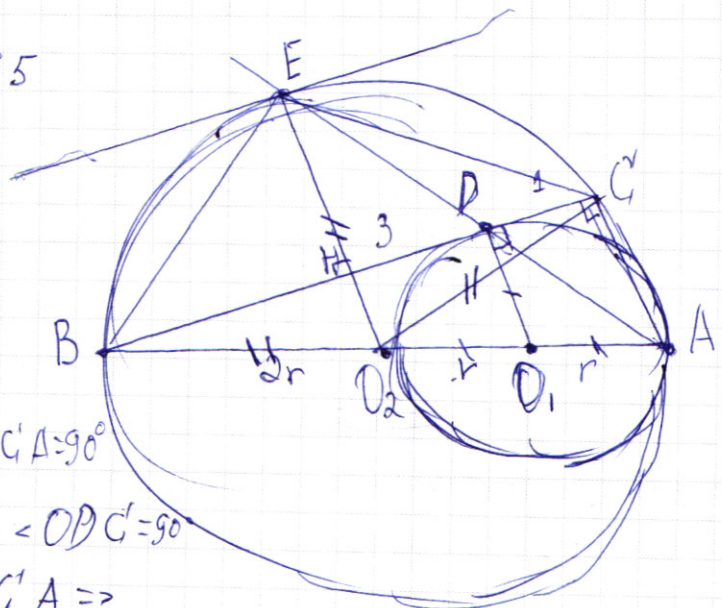 5
E
1
C
D
3
B
2r
O₂
r
O₁
r
A
C A=90°
< ODC=90
C A =>